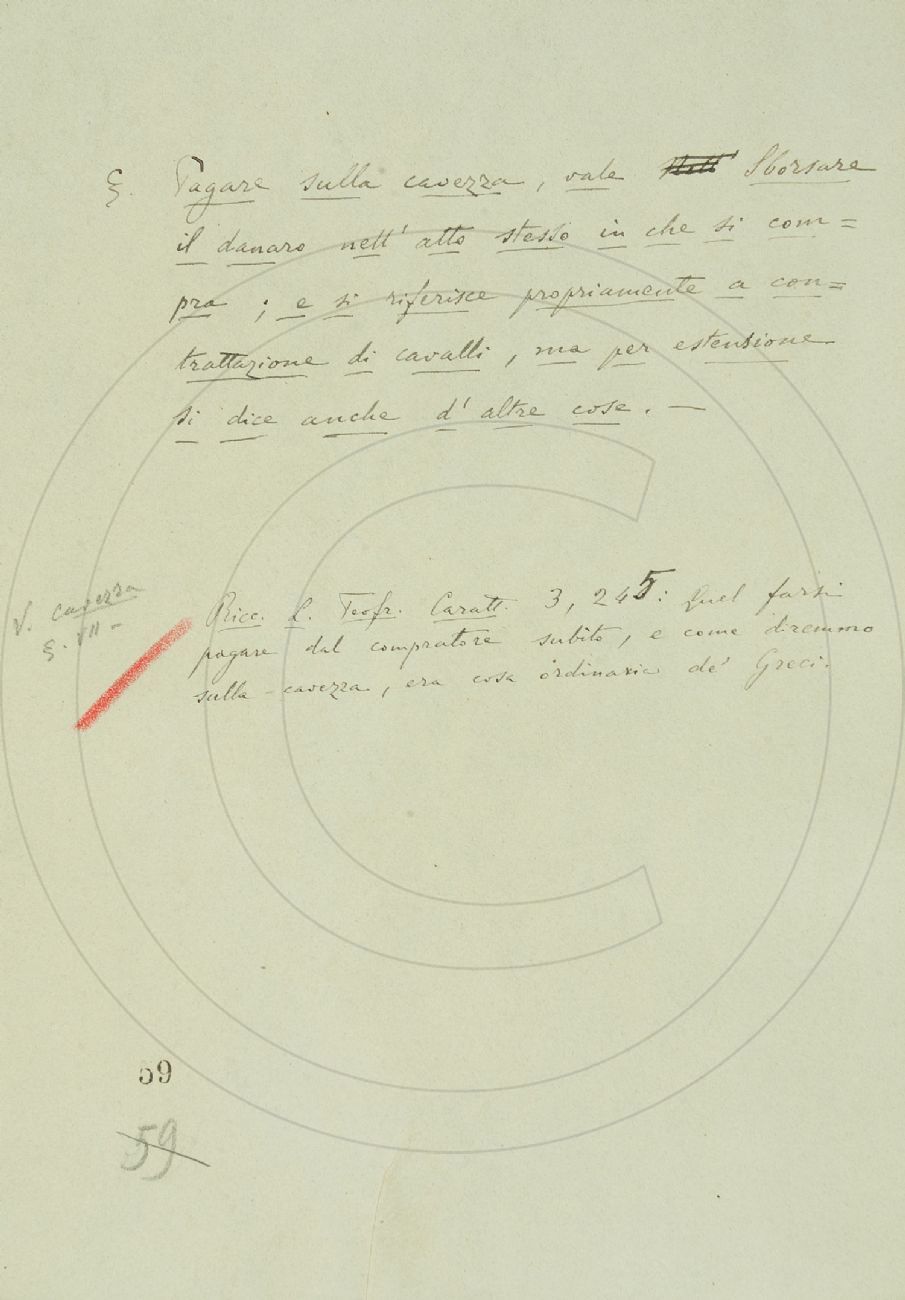 §. Pagare sulla cavezza, vale Sborsare
il danaro nell' atto stesso in che si com=
pra; e si riferisce propriamente a con=
trattazione di cavalli, ma per estensione
si dice anche d' altre cose. —
V. cavezza
§. VII -
Ricc. L. Teofr. Caratt. 3, 245: Quel farsi
pagare dal compratore subito, e come diremmo
sulla cavezza, era cosa ordinaria de' Greci.
59
59